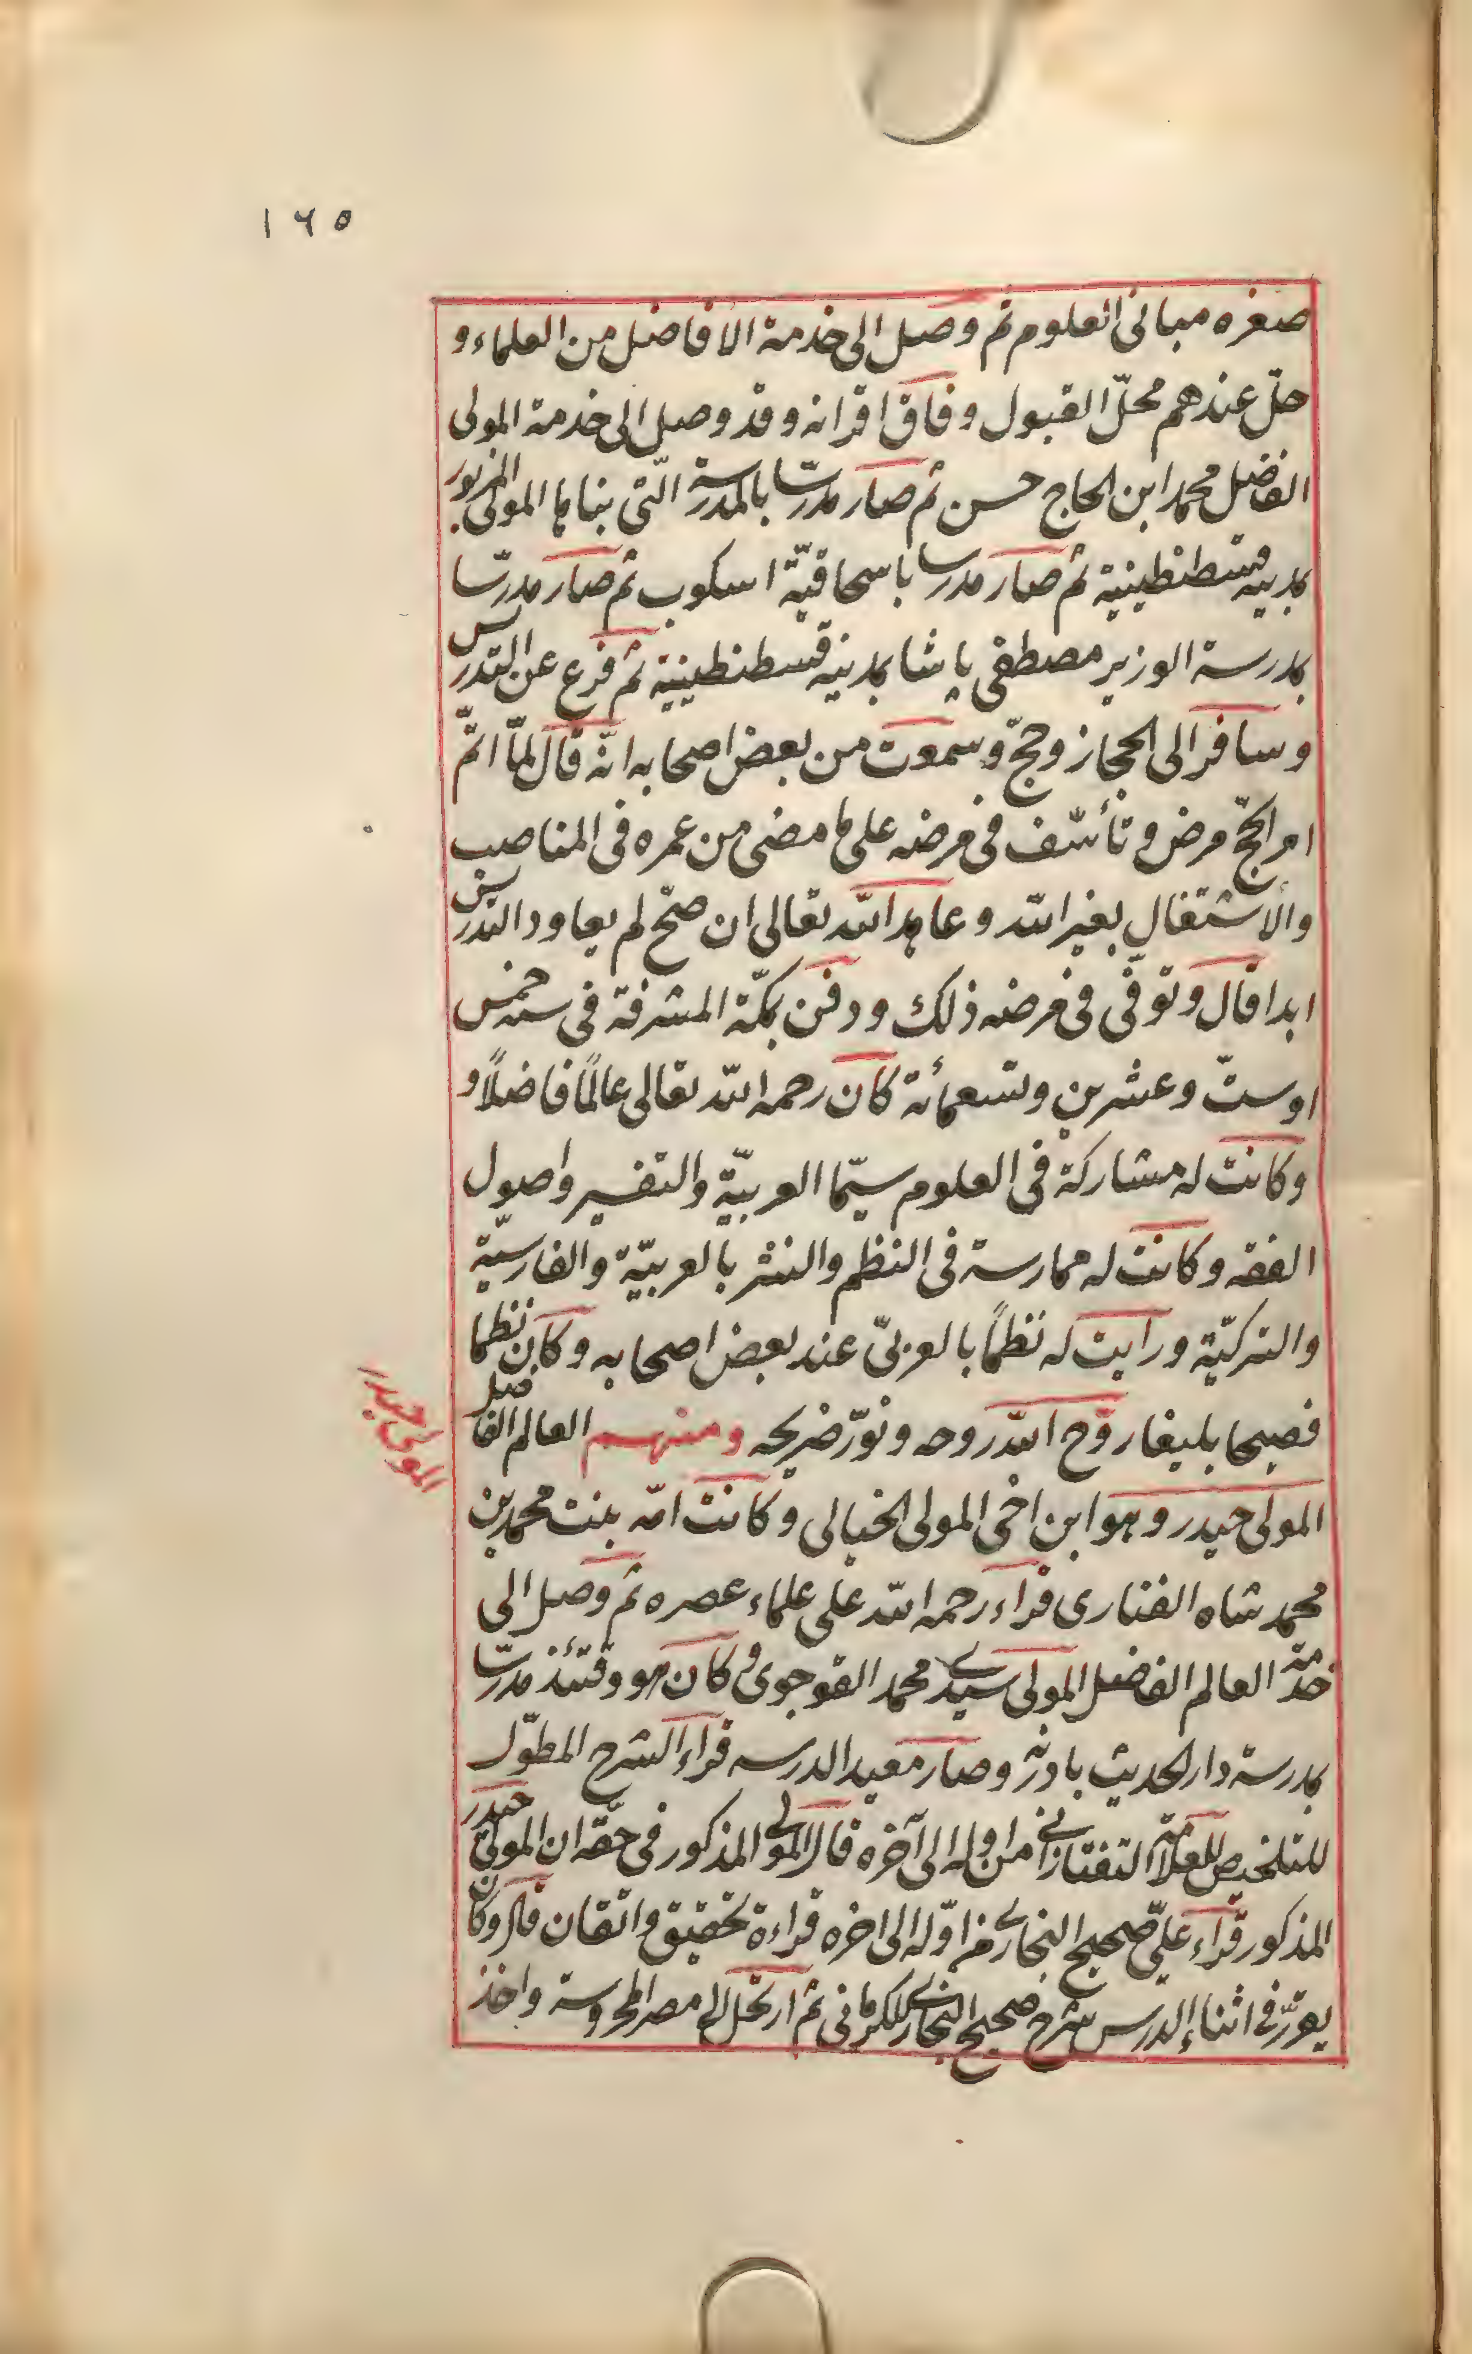 ١٦٥
صغره مباني العلوم ثم وصل الى خدمة الافاضل من العلماء و
حلّ عندهم محلّ القبول وفاق اقرانه وقد وصل الى خدمة المولى
الفاضل محمد ابن الحاج حسن ثم صار مدرّسا بالمدرسة الّتي بناها المولى المزبور
بمدينه قسطنطينية ثم صار مدرسا باسحاقيّة اسكوب ثم صار مدرّسا
بمدرسة الوزير مصطفى پاشا بمدينه قسطنطينية ثم فرغ عن التدريس
وسافر الى الحجاز وحجّ وسمعت من بعض اصحابه انّه قال لمّا اتمّ
امر الحجّ مرض وتأسّف في مرضه على ما مضى من عمره في المناصب
والأشتغال بغير الله وعاهد الله تعالى ان صحّ لم يعاود التدريس
ابدا قال وتوفّي في مرضه ذلك ودفن بمكّة المشرفة في سنه خمس
اوستّ وعشرين وتسعمأئة كان رحمه الله تعالى عالمًا فاضلًا و
وكانت له مشاركة في العلوم سيّما العربيّة والتفسير واصول
الفقه وكانت له ممارسة في النظم والنثر بالعربيّة والفارسيّة
والتركيّة ورايت له نظمًا بالعربيّ عند بعض اصحابه وكان نظما
فصيحا بليغا روّح الله روحه ونوّر ضريحه ومنهم العالم الفاضل
المولى حيدر
المولى حيدر وهو ابن اخي المولى الخيالي وكانت امّه بنت محمد بن
محمد شاه الفناري قراء رحمه الله على علماء عصره ثم وصل الى
خدمة العالم الفاضل المولى سيدي محمد القوجوى وكان هو وقتئذ مدرّسا
بمدرسة دار الحديث بادرنه وصار معيد الدرسه قراء الشرح المطوّل
للتلخيص للعلّامة التفتازاني من اوله الى آخره قال المولى المذكور في حقّه ان المولى حيدر
المذكور قراء علىّ صحيح البخاري من اوّله الى اخره قراءة تحقيق واتقان قال وكان
يقرّر في اثناء الدرس شرح صحيح البخاري للكرماني ثم ارتحل الى مصر المحروسة واخذ